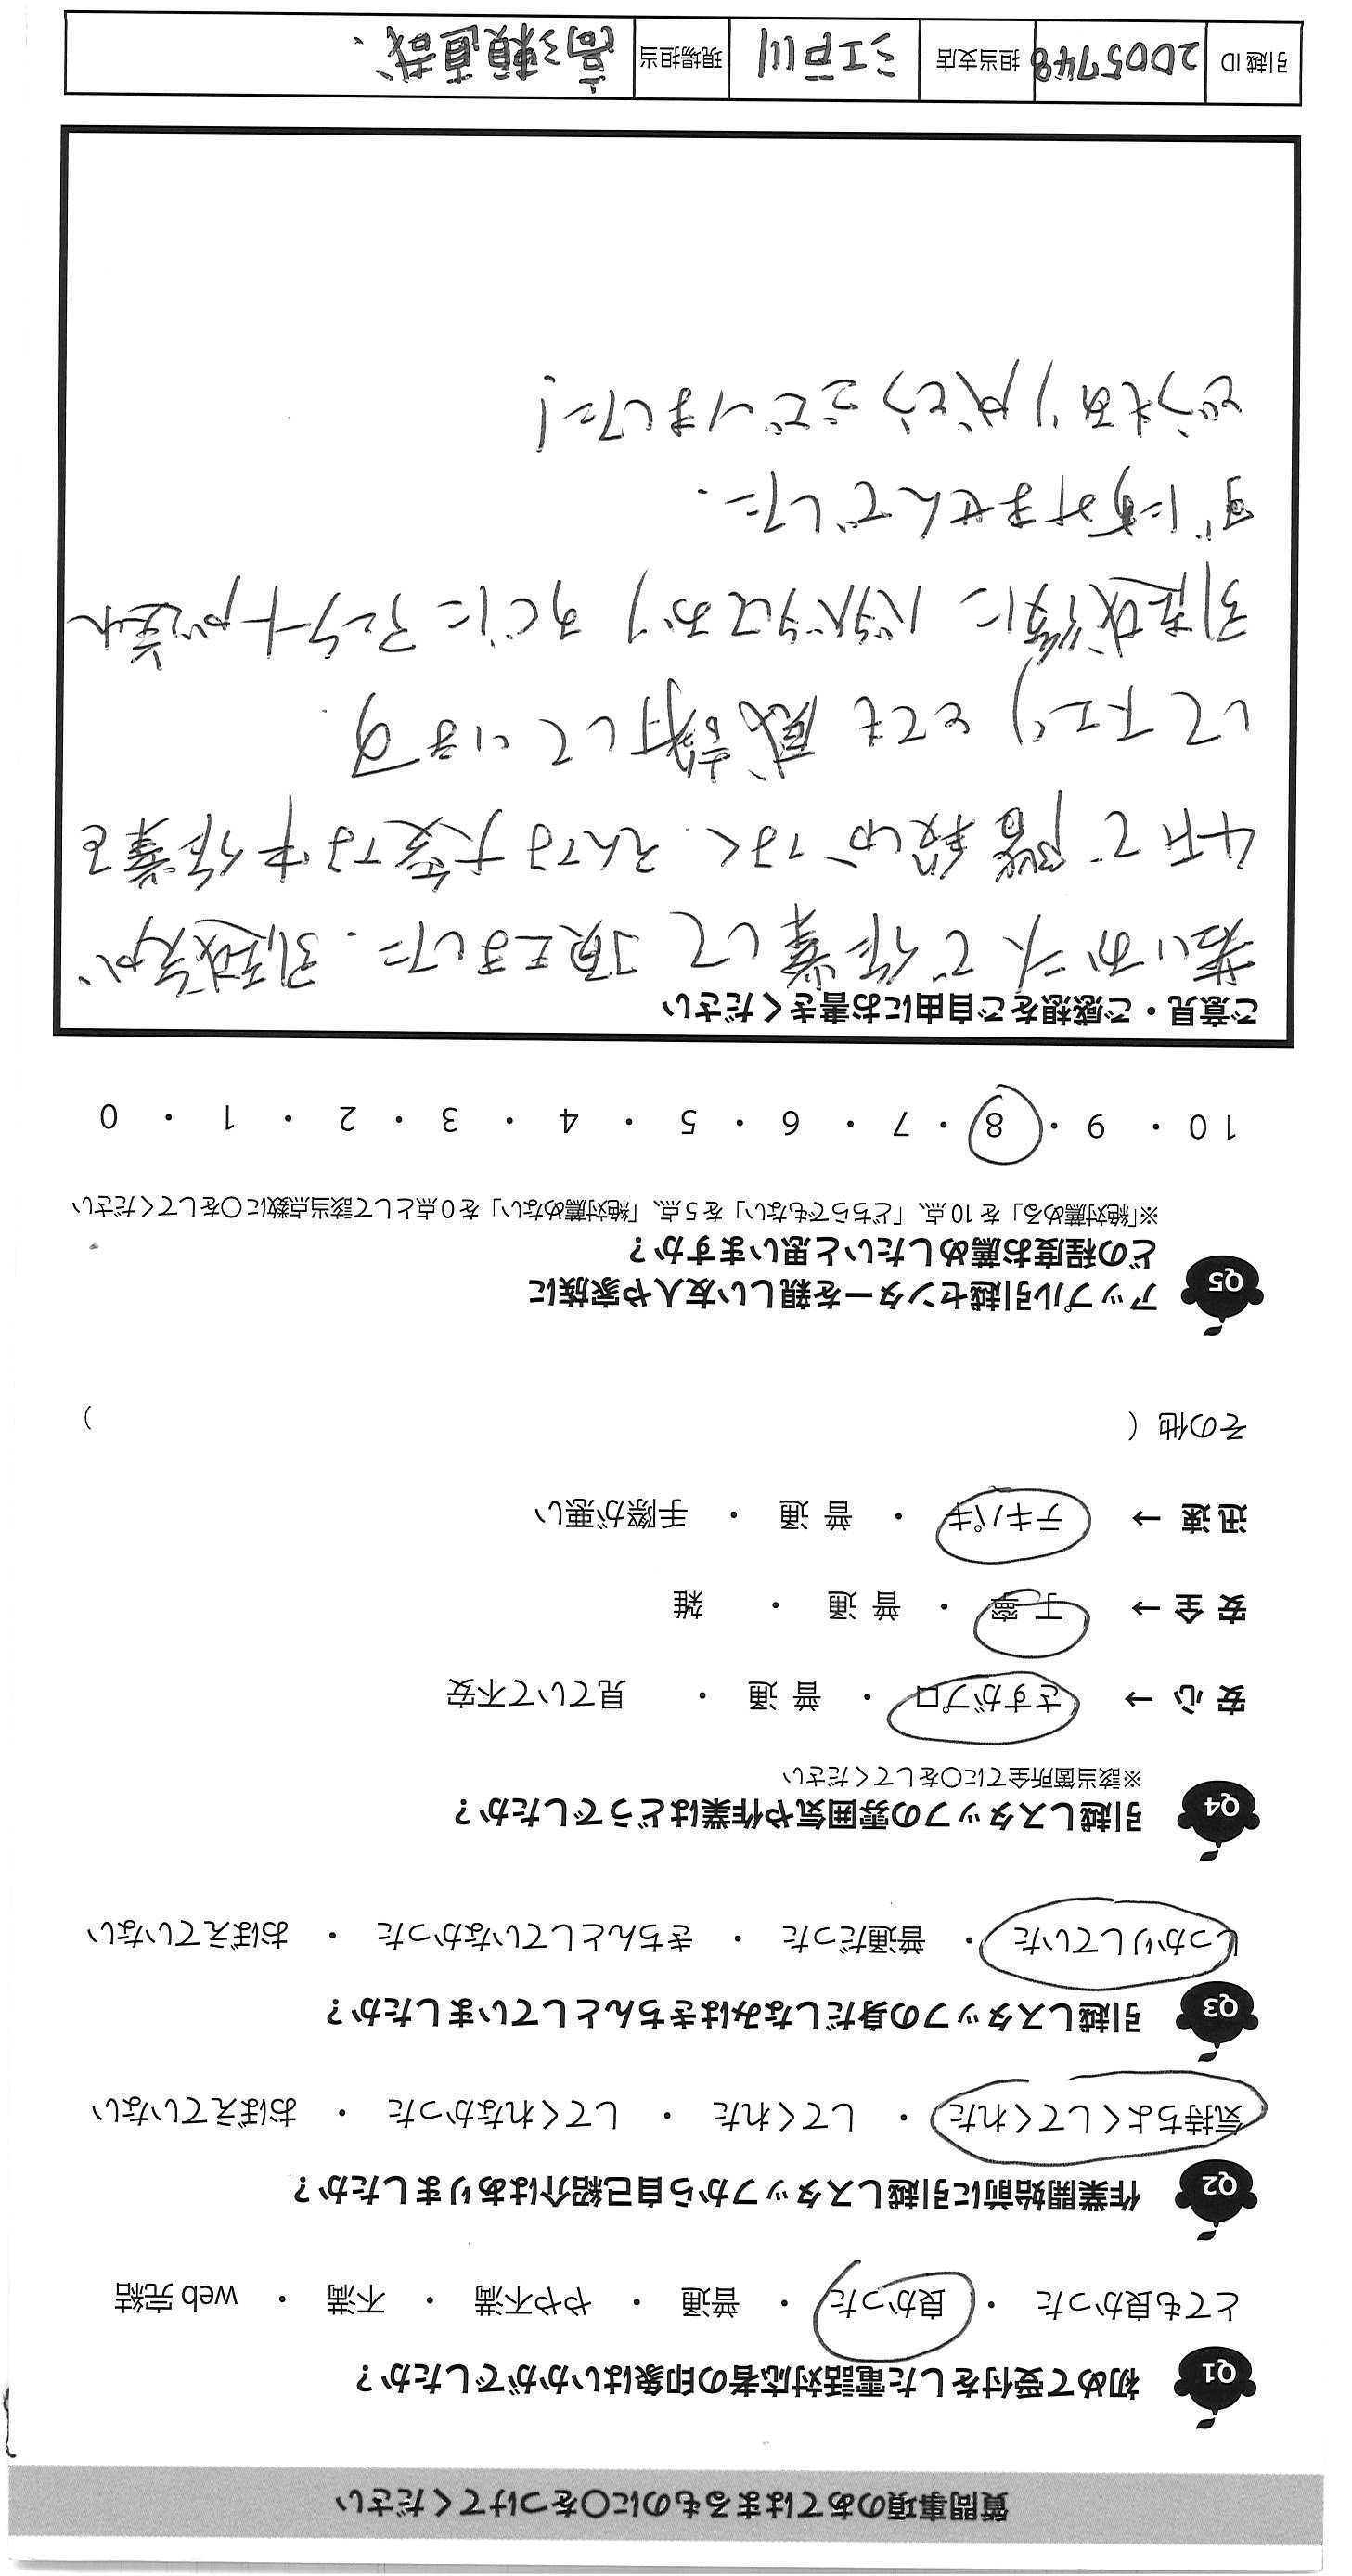 質問事項のあてはまるものに〇をつけてください
Q1 初めて受付をした電話対応者の印象はいかがでしたか？
とても良かった ・ 良かった ・ 普通 ・ やや不満 ・ 不満 ・ web 完結
Q2 作業開始前に引越しスタッフから自己紹介はありましたか？
気持ちよくしてくれた ・ してくれた ・ してくれなかった ・ おぼえていない
Q3 引越しスタッフの身だしなみはきちんとしていましたか？
しっかりしていた ・ 普通だった ・ きちんとしていなかった ・ おぼえていない
Q4 引越しスタッフの雰囲気や作業はどうでしたか？
※該当箇所全てに〇をしてください
安 心 → さすがプロ ・ 普 通 ・ 見ていて不安
安 全 → 丁 寧 ・ 普 通 ・ 雑
迅 速 → テキパキ ・ 普 通 ・ 手際が悪い
その他（ ）
Q5 アップル引越センターを親しい友人や家族に
どの程度お薦めしたいと思いますか？
※「絶対薦める」を 10 点、「どちらでもない」を 5 点、「絶対薦めない」を 0 点として該当点数に〇をしてください
10 ・ 9 ・ 8 ・ 7 ・ 6 ・ 5 ・ 4 ・ 3 ・ 2 ・ 1 ・ 0
ご意見・ご感想をご自由にお書きください
若いお二人で作業して頂きました. 引越先が
4Fで階段しかなく. そんな大変な中作業を
して下さり とても感謝しています.
引越後に バタバタしており すぐに アンケートが送れ
ずにすみませんでした.
どうもありがとうございました!
引越 ID 2005748 担当支店 江戸川 現場担当 高瀬直哉.